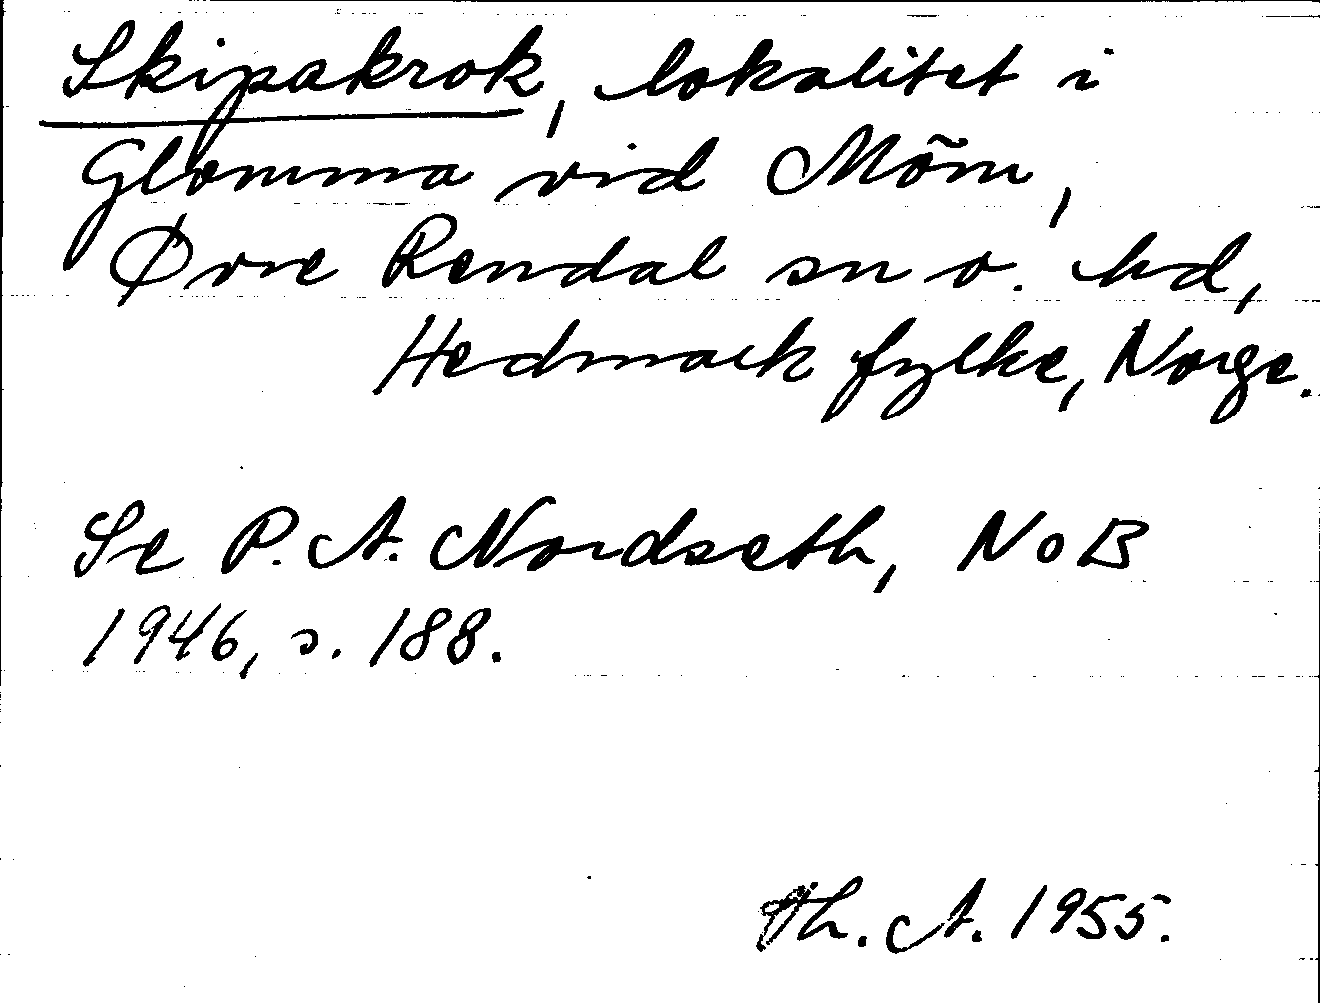 Skipakrok, lokalitet i
Glomma vid Mõm,
Øvre Rendal sn o. hd,
Hedmark fylke, Norge.
Se P. A. Nordseth, NoB
1946, s. 188.
Th. A. 1955.